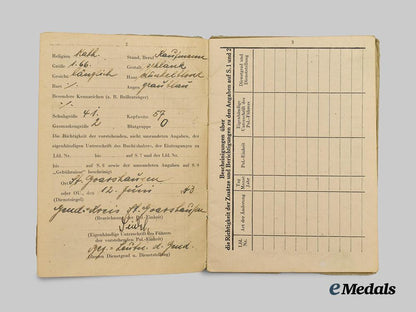 2
Religion Kath. Stand, Beruf Kaufmann
Größe 1.66. Gestalt schlank
Gesicht länglich Haar dunkelblond
Bart ./. Augen graublau
Besondere Kennzeichen (z. B. Brillenträger)
./.
Schuhgröße 41. Kopfweite 57
Gasmaskengröße 2 Blutgruppe 0
Die Richtigkeit der vorstehenden, nicht umrandeten Angaben, der
eigenhändigen Unterschrift des Buchinhabers, der Eintragungen zu
Lfd. Nr. bis auf S. 1 und der Lfd. Nr.
bis auf S. 6 sowie der umrandeten Angaben auf S. 6
"Gebührnisse" bescheinigt
Ort St. Goarshausen
oder OU., den 12. Juni 43
(Dienstsiegel)
Gend.-Kreis St. Goarshausen
(Bezeichnung der Pol.-Einheit)
(Eigenhändige Unterschrift des Führers
der vorstehenden Pol.-Einheit)
d. Gend.
(Dessen Dienstgrad u. Dienststellung)
3
Bescheinigungen über
die Richtigkeit der Zusätze und Berichtigungen zu den Angaben auf S. 1 und 2
Lfd. Nr.
Art der Änderung
Tag Mon. Jahr
Pol.-Einheit
Eigenhändige Unterschrift des Pol.-Führers
Dienstgrad und Dienststellung
eMedals